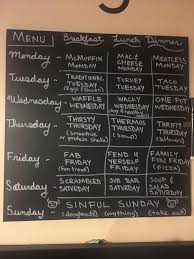 MENU Breakfast Lunch Dinner
Monday - McMUFFIN MONDAY MAC & CHEESE MONDAY MEATLESS MONDAY
Tuesday - TRADITIONAL TUESDAY (eggs/bacon) TURKEY TUESDAY TACO TUESDAY
Wednesday - WAFFLE WEDNESDAY WACKY WEDNESDAY (anything goes) ONE POT WEDNESDAY
Thursday - THIRSTY THURSDAY (smoothie or protein shake) THRIFTY THURSDAY THURSDAY
Friday - FAB FRIDAY FEND 4 YERSELF FRIDAY FAMILY FUN FRIDAY (pizza)
Saturday - SCRAMBLED SATURDAY SUB BAR SATURDAY SOUP & SALAD SATURDAY
SINFUL SUNDAY
Sunday - (doughnuts) (anything) (take out)